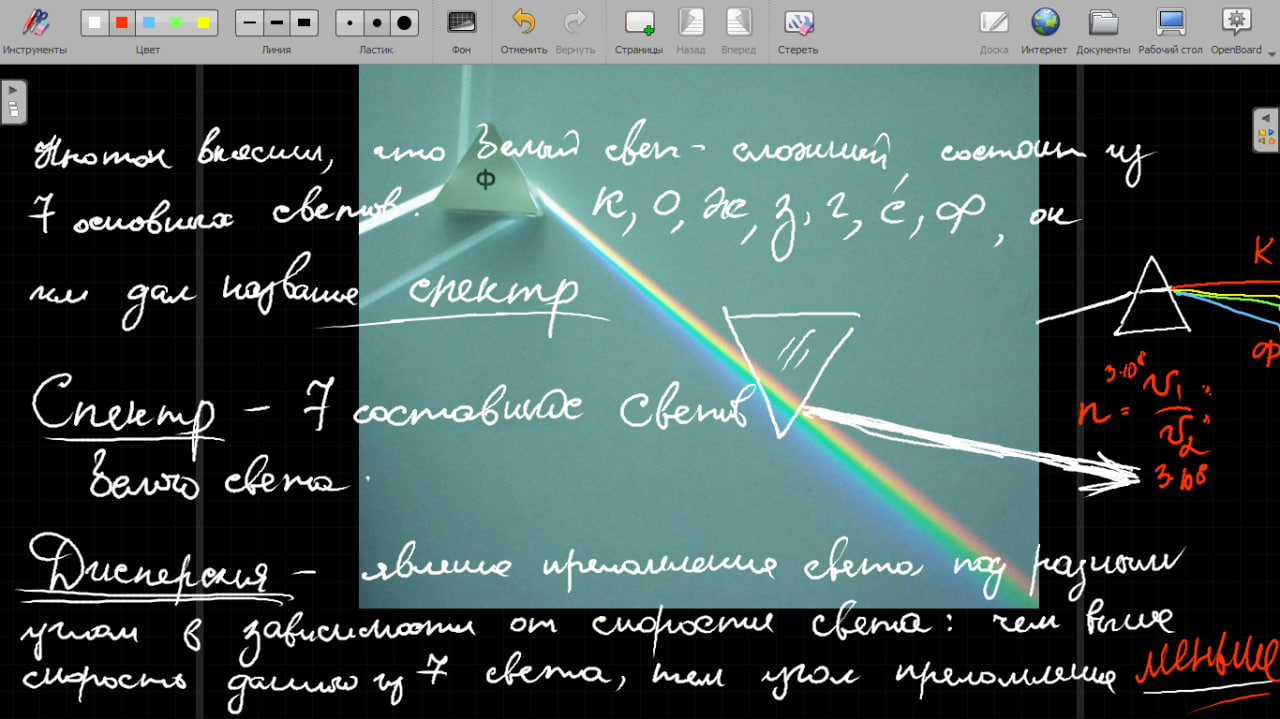 Инструменты Цвет Линия Ластик Фон Отменить Вернуть Страницы Назад Вперед Стереть Доска Интернет Документы Рабочий стол OpenBoard
Ньютон выяснил, что белый свет - сложный состоит из
Ф
7 основных светов. К, О, Ж, З, Г, С, Ф, он
им дал название спектр
К
Ф
Спектр - 7 составных светов
белого света.
3·10⁸
n = υ₁ / υ₂
3·10⁸
Дисперсия - явление преломление света под разными
углом в зависимости от скорости света: чем выше
скорость данного из 7 света, тем угол преломление меньше